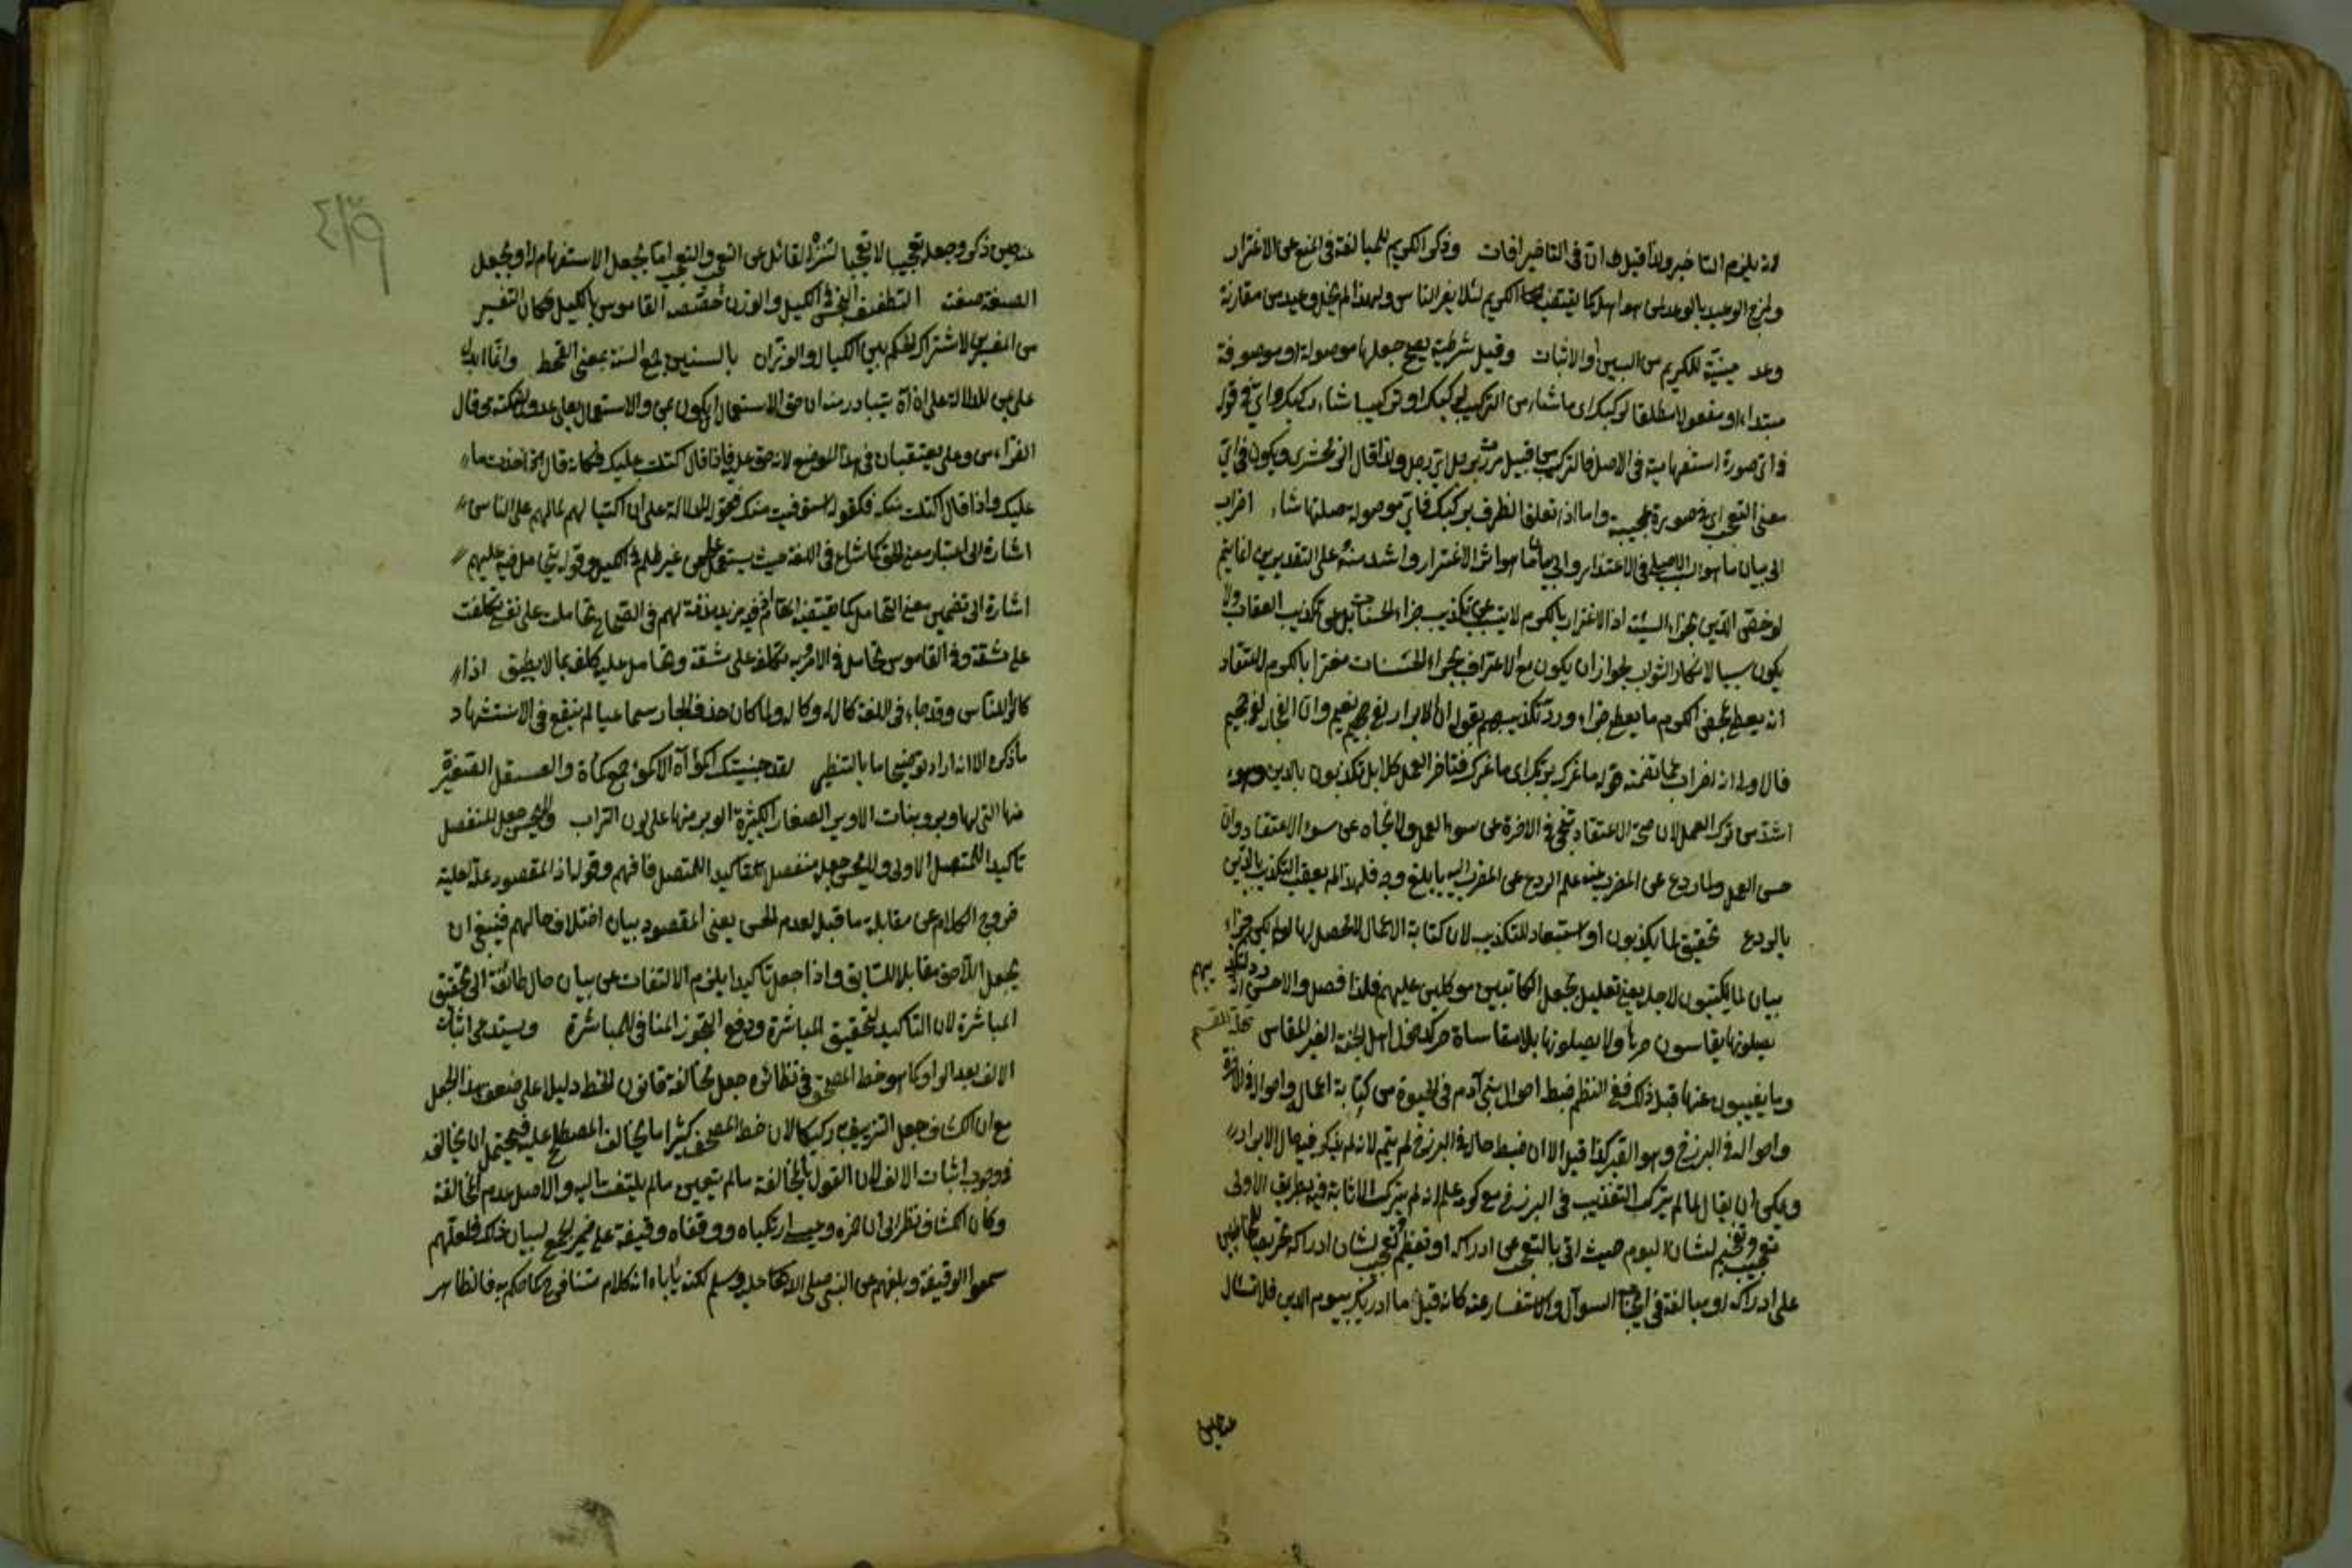 لانه يلزم التاخير ولذا قيل ان في التاخير افات وذكر الكريم للمبالغة في المنع عن الاغترار
ومزج الوعيد بالوعد كما يقتضيه الكريم لئلا يغر الناس ولهذا لم يخل وعيد من مقارنة
وعد مبينة للكريم من البين او الاثبات وقيل شرطية يصح جعلها موصولة او موصوفة
مبتدا او مفعولا مطلقا لركبك اى ما شاء من التركيب ركبك او تركيبا شاء ركبك واي في قوله
في اي صورة استفهامية في الاصل فالتركيب من قبيل مررت برجل اي رجل ولذا قال الزمخشرى ويكون في اي
معنى التعجب اى في صورة عجيبة واما اذا تعلق الظرف بركبك فاي موصولة صلتها شاء اضراب
الى بيان ما هو السبب الاصلي في الاغترار واشد منه على التقديرين انما يتم
لو خص الدين بجزاء السيئة اذ الاغترار بالكريم لا يتسبب عن تكذيب جزاء الحسنات بل عن تكذيب العقاب ولا
يكون سببا لانكار الثواب لجواز ان يكون مع الاعتراف بجزاء الحسنات مغترا بالكريم لاعتقاد
انه يعطي بمحض الكرم ما يعطي جزاء ورد تكذيبهم بقوله ان الابرار لفي نعيم وان الفجار لفي جحيم
فالاولى انه اضراب عما تضمنه قوله ما غرك بربك اى ما غرك فتاخر العمل كلا بل تكذبون بالدين وهو
اشد من ترك العمل لان صحة الاعتقاد تنجي في الاخرة عن سوء العمل ولا نجاة عن سوء الاعتقاد وان
حسن العمل ولما ردع عن المضرب عنه علم الردع عن المضرب اليه بابلغ وجه فلهذا لم يعقب التكذيب بالدين
بالردع تحقيق لما يكذبون او استبعاد للتكذيب لان كتابة الاعمال لا يحصل لها لو لم يكن جزاء
بيان لما يكتبون لاجله يعني تعليل بجعل الكاتبين موكلين عليهم فلذا فصل والاحسن انه رد لتكذيبهم
يصلونها يقاسون حرها ولا يصلونها بلا مقاساة حر كدخول اهل الجنة الغير المقاس تحلة القسم
وما يغيبون عنها قبل ذلك ففي النظم ضبط احوال بني آدم في الحيوة من كتابة اعماله واحواله في الاخرة
واحواله في البرزخ وهو القبر كذا قيل الا ان ضبط حاله في البرزخ لم يتم لانه لم يذكر فيه حال الابرار
ويمكن ان يقال لما لم يترك التعذيب في البرزخ مع كونه علم انه لم يترك الاثابة فيه بطريق الاولى
تعجيب وتفخيم لشان اليوم حيث اتى بالتعجب عن ادراكه او تعظيم وتعجيب لشان ادراكه تحريضا للمخاطبين
على ادراكه او مبالغة في السوآل والاستفسار عنه كانه قيل ما ادريك بيوم الدين فلا تسال
عنه حين ذكر وجعله تعجيبا لا تعجبا لتنزه القائل عن التعجب والتعجيب اما بجعل الاستفهام له او بجعل
الصيغة صيغته التطفيف البخس في الكيل والوزن خصصه القاموس بالكيل فكان التفسير
من المفسرين لاشتراك الحكم بين الكيال والوزان بالسنين جمع السنة بمعنى القحط وانما ابدل
على من للدلالة على انه يتبادر منه ان حق الاستعمال ان يكون بمن والاستعمال بعلى عدول لنكتة وقال
الفراء من وعلى يعتقبان في هذا الموضع لانه حق عليه فاذا قال اكتلت عليك فكانه قال اخذت ما
عليك واذا قال اكتلت منك فكقوله استوفيت منك فقوله للدلالة على ان اكتيالهم لما لهم على الناس
اشارة الى اعتبار معنى الحق كما شاع في اللغة حيث يستعمل على من غير ظلم في الكيل وقوله يتحامل فيه عليهم
اشارة الى تضمين معنى التحامل كما يقتضيه المقام اذ فيه مزيد مذمة لهم في الصحاح تحاملت على نفسي تكلفت
على مشقة وفي القاموس تحامل في الامر وبه تكلفه على مشقة وتحامل عليه كلفه بما لا يطيق اذا
كالوا للناس وقد جاء في اللغة كاله وكال له ولما كان حذف الجار سماعيا لم ينفع في الاستشهاد
ما ذكره الا انه اراد توضيحا ما بالتنظير لقد جنيتك اكمؤا آه الاكمؤ جمع كمأة والعسقل الصغيرة
منها التي لها وبر وبنات الاوبر الصغار الكثيرة الوبر منها على لون التراب ولا يحسن جعل المنفصل
تاكيدا للمتصل الاولى ولا يحسن جعل منفصل تاكيدا للمتصل فافهم وقوله اذ المقصود علة لعلية
خروج الكلام عن مقابلة ما قبله لعدم الحسن يعني المقصود بيان اختلاف حالهم فينبغي ان
يجعل اللاحق مقابلا للسابق واذا جعل تاكيدا يلزم الالتفات من بيان حال طائفة الى تحقيق
المباشرة لان التاكيد لتحقيق المباشرة ودفع التجوز المنافي للمباشرة ويستدعي اثبات
الالف بعد الواو كما هو خط المصحف في نظائره جعل مخالفة قانون الخط دليلا على ضعف هذا الجعل
مع ان الكشاف جعل التزييف به ركيكا لان خط المصحف كثيرا ما يخالف المصطلح عليه فيحتمل ان يخالفه
في وجوب اثبات الالف لان القول بالمخالفة ما لم يتعين مما لم يلتفت اليه والاصل عدم المخالفة
وكان الكشاف نظر الى ان حمزة وعيسى ارتكباه ووقفاه وقيفة على ضمير الجمع لبيان ذلك فلعلهم
سمعوا الوقيفة وبلغهم من النبي صلى الله عليه وسلم لكنه يأباه انه كلام متنافر كما حكم به فالظاهر